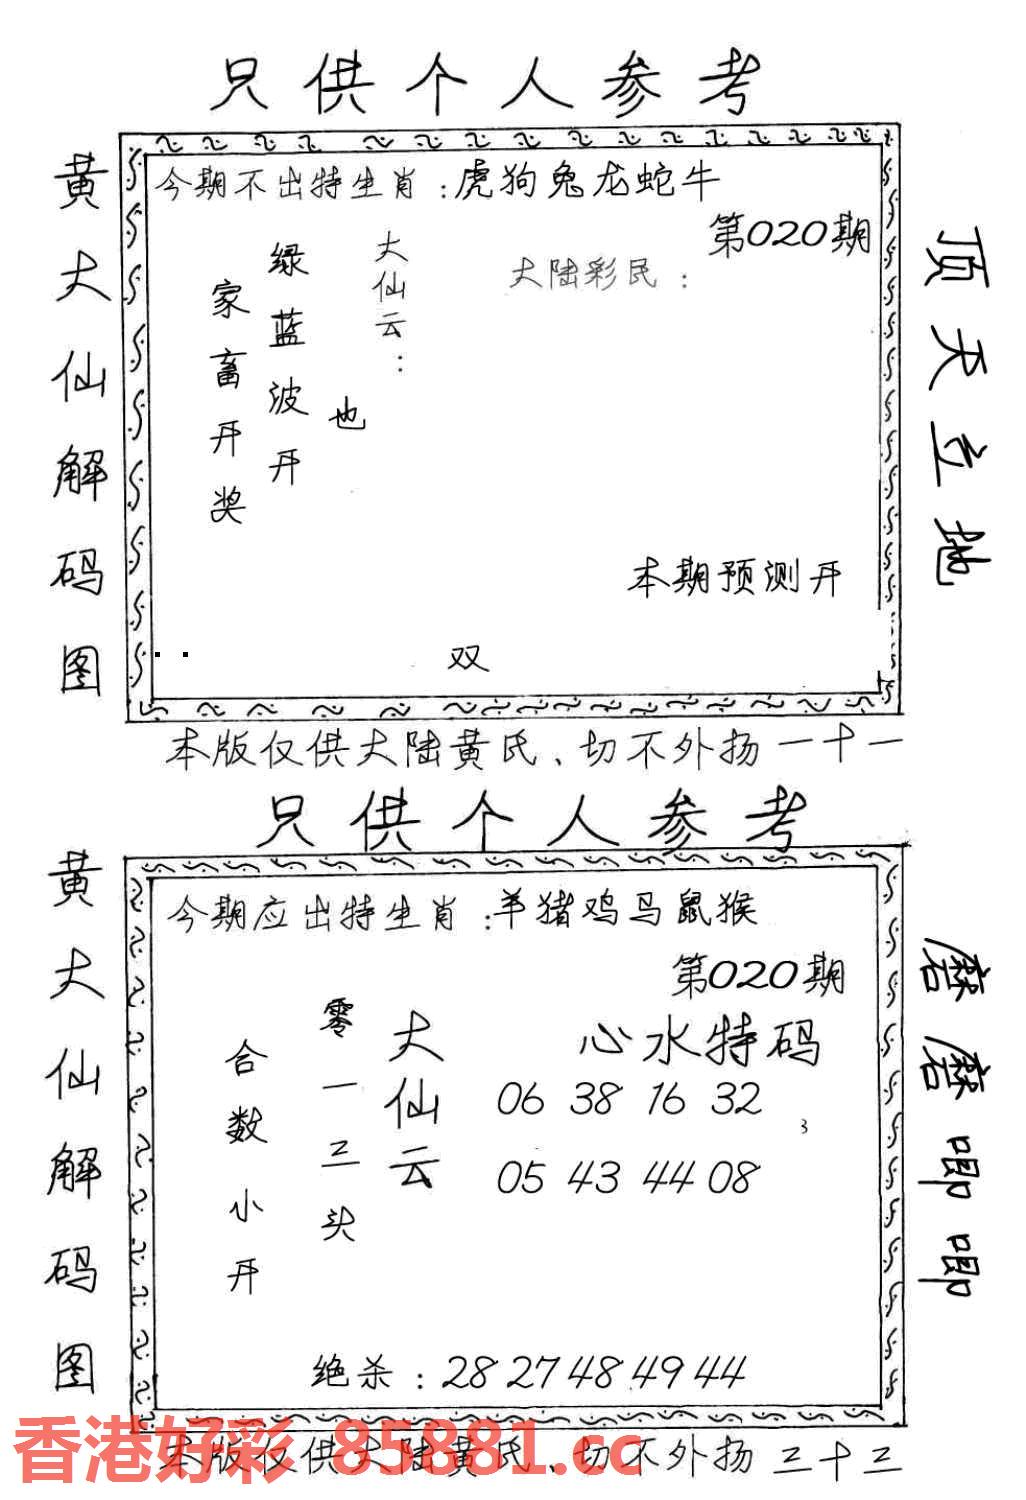 只供个人参考
黄大仙解码图
今期不出特生肖：虎狗兔龙蛇牛
第020期
大仙云：
绿蓝波开
家畜开奖
也
大陆彩民：
本期预测开
双
顶天立地
本版仅供大陆黄氏、切不外扬一十一
只供个人参考
黄大仙解码图
今期应出特生肖：羊猪鸡马鼠猴
第020期
心水特码
大仙云
零一三头
合数小开
06 38 16 32
3
05 43 44 08
绝杀：28 27 48 49 44
磨磨唧唧
香港好彩 85881.cc
本版仅供大陆黄氏、切不外扬三十三